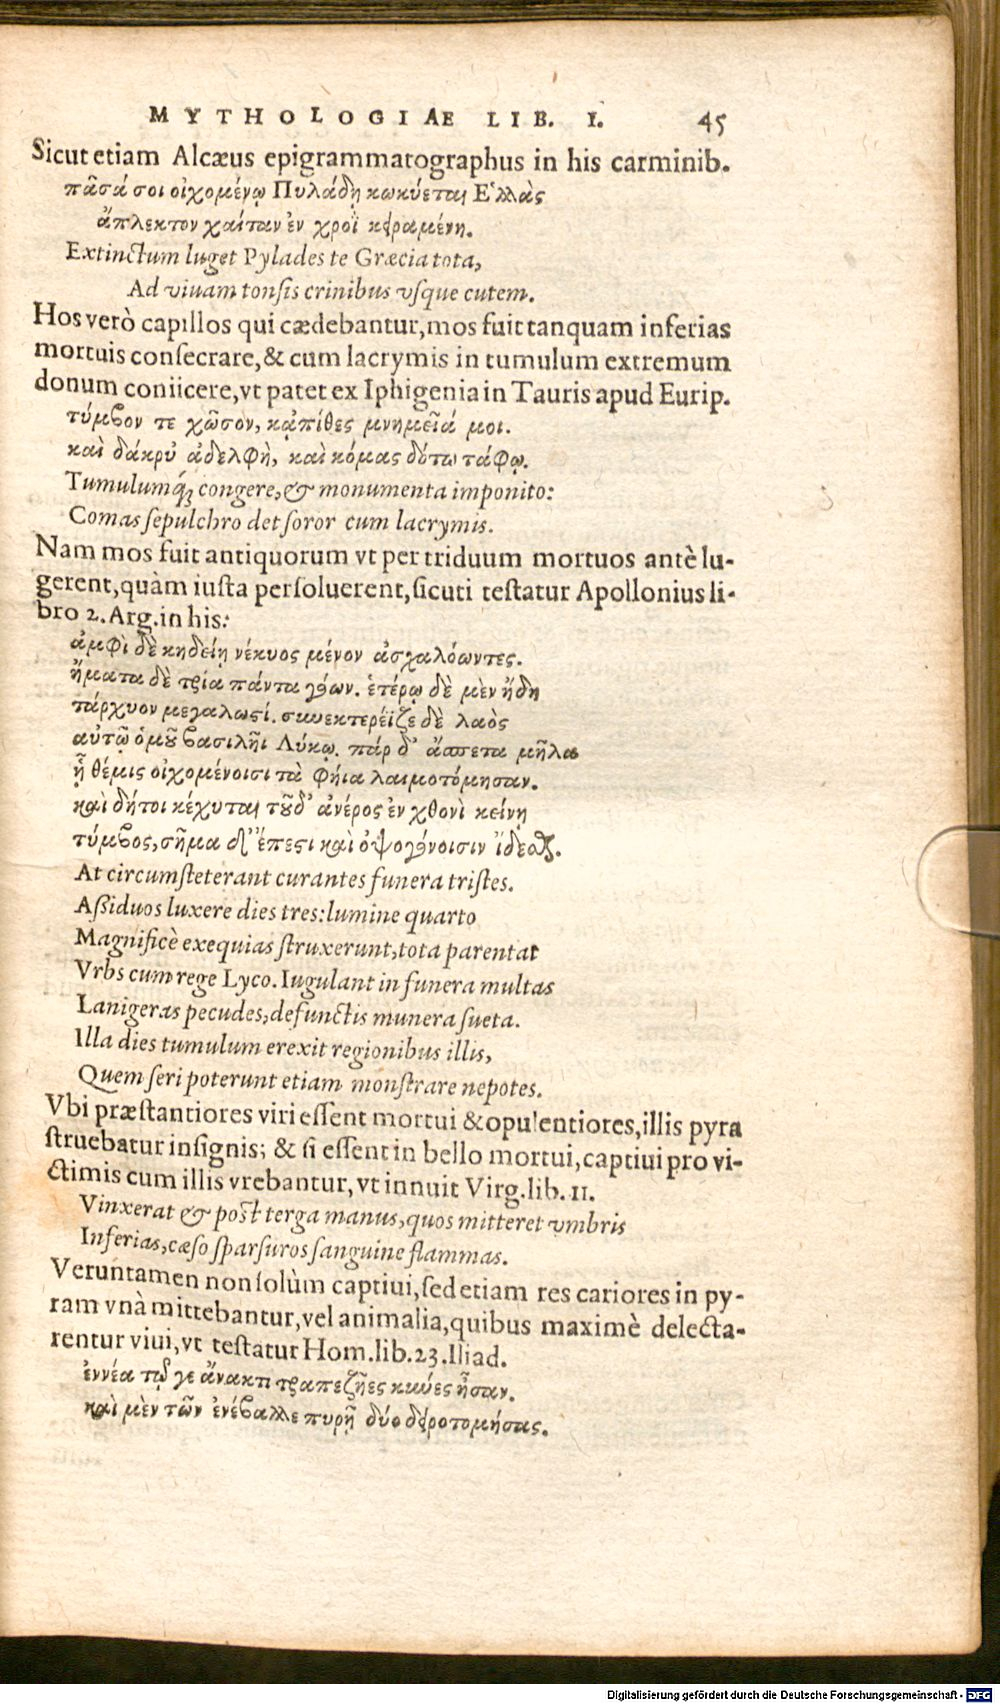 MYTHOLOGIÆ LIB. I. 45
Sicut etiam Alcæus epigrammatographus in his carminib.
πᾶσά σοι οἰχομένῳ Πυλάδη κωκύεται Ἑλλὰς
ἄπλεκτον χαίταν ἐν χροῒ κειραμένη.
Extinctum luget Pylades te Græcia tota,
Ad viuam tonsis crinibus vsque cutem.
Hos verò capillos qui cædebantur, mos fuit tanquam inferias
mortuis consecrare, & cum lacrymis in tumulum extremum
donum coniicere, vt patet ex Iphigenia in Tauris apud Eurip.
τύμβον τε χῶσον, κᾀπίθες μνημεῖά μοι.
καὶ δάκρυ᾽ ἀδελφὴ, καὶ κόμας δότω τάφῳ.
Tumulumq́; congere, & monumenta imponito:
Comas sepulchro det soror cum lacrymis.
Nam mos fuit antiquorum vt per triduum mortuos antè lu-
gerent, quàm iusta persoluerent, sicuti testatur Apollonius li-
bro 2. Arg. in his:
ἀμφὶ δὲ κηδείῃ νέκυος μένον ἀσχαλόωντες.
ἤματα δὲ τρία πάντα γόων. ἑτέρῳ δὲ μὲν ἤδη
τάρχυον μεγαλωσί. συνεκτερέϊζε δὲ λαὸς
αὐτῶ ὁμοῦ βασιλῆι Λύκῳ. πάρ δ᾽ ἄσπετα μῆλα
ᾗ θέμις οἰχομένοισι τὰ φήια λαιμοτόμησαν.
καὶ δήτοι κέχυται τοῦδ᾽ ἀνέρος ἐν χθονὶ κείνῃ
τύμβος, σῆμα δ᾽ ἔπεσι καὶ ὀψογόνοισιν ἰδέσθαι.
At circumsteterant curantes funera tristes.
Assiduos luxere dies tres: lumine quarto
Magnificè exequias struxerunt, tota parentat
Vrbs cum rege Lyco. Iugulant in funera multas
Lanigeras pecudes, defunctis munera sueta.
Illa dies tumulum erexit regionibus illis,
Quem seri poterunt etiam monstrare nepotes.
Vbi præstantiores viri essent mortui & opulentiores, illis pyra
struebatur insignis; & si essent in bello mortui, captiui pro vi-
ctimis cum illis vrebantur, vt innuit Virg. lib. 11.
Vinxerat & post terga manus, quos mitteret vmbris
Inferias, cæso sparsuros sanguine flammas.
Veruntamen non solùm captiui, sed etiam res cariores in py-
ram vnà mittebantur, vel animalia, quibus maximè delecta-
rentur viui, vt testatur Hom. lib. 23. Iliad.
ἐννέα τῷ γε ἄνακτι τραπεζῆες κύνες ἦσαν.
καὶ μὲν τῶν ἐνέβαλλε πυρῇ δύο δειροτομήσας.
Digitalisierung gefördert durch die Deutsche Forschungsgemeinschaft - DFG